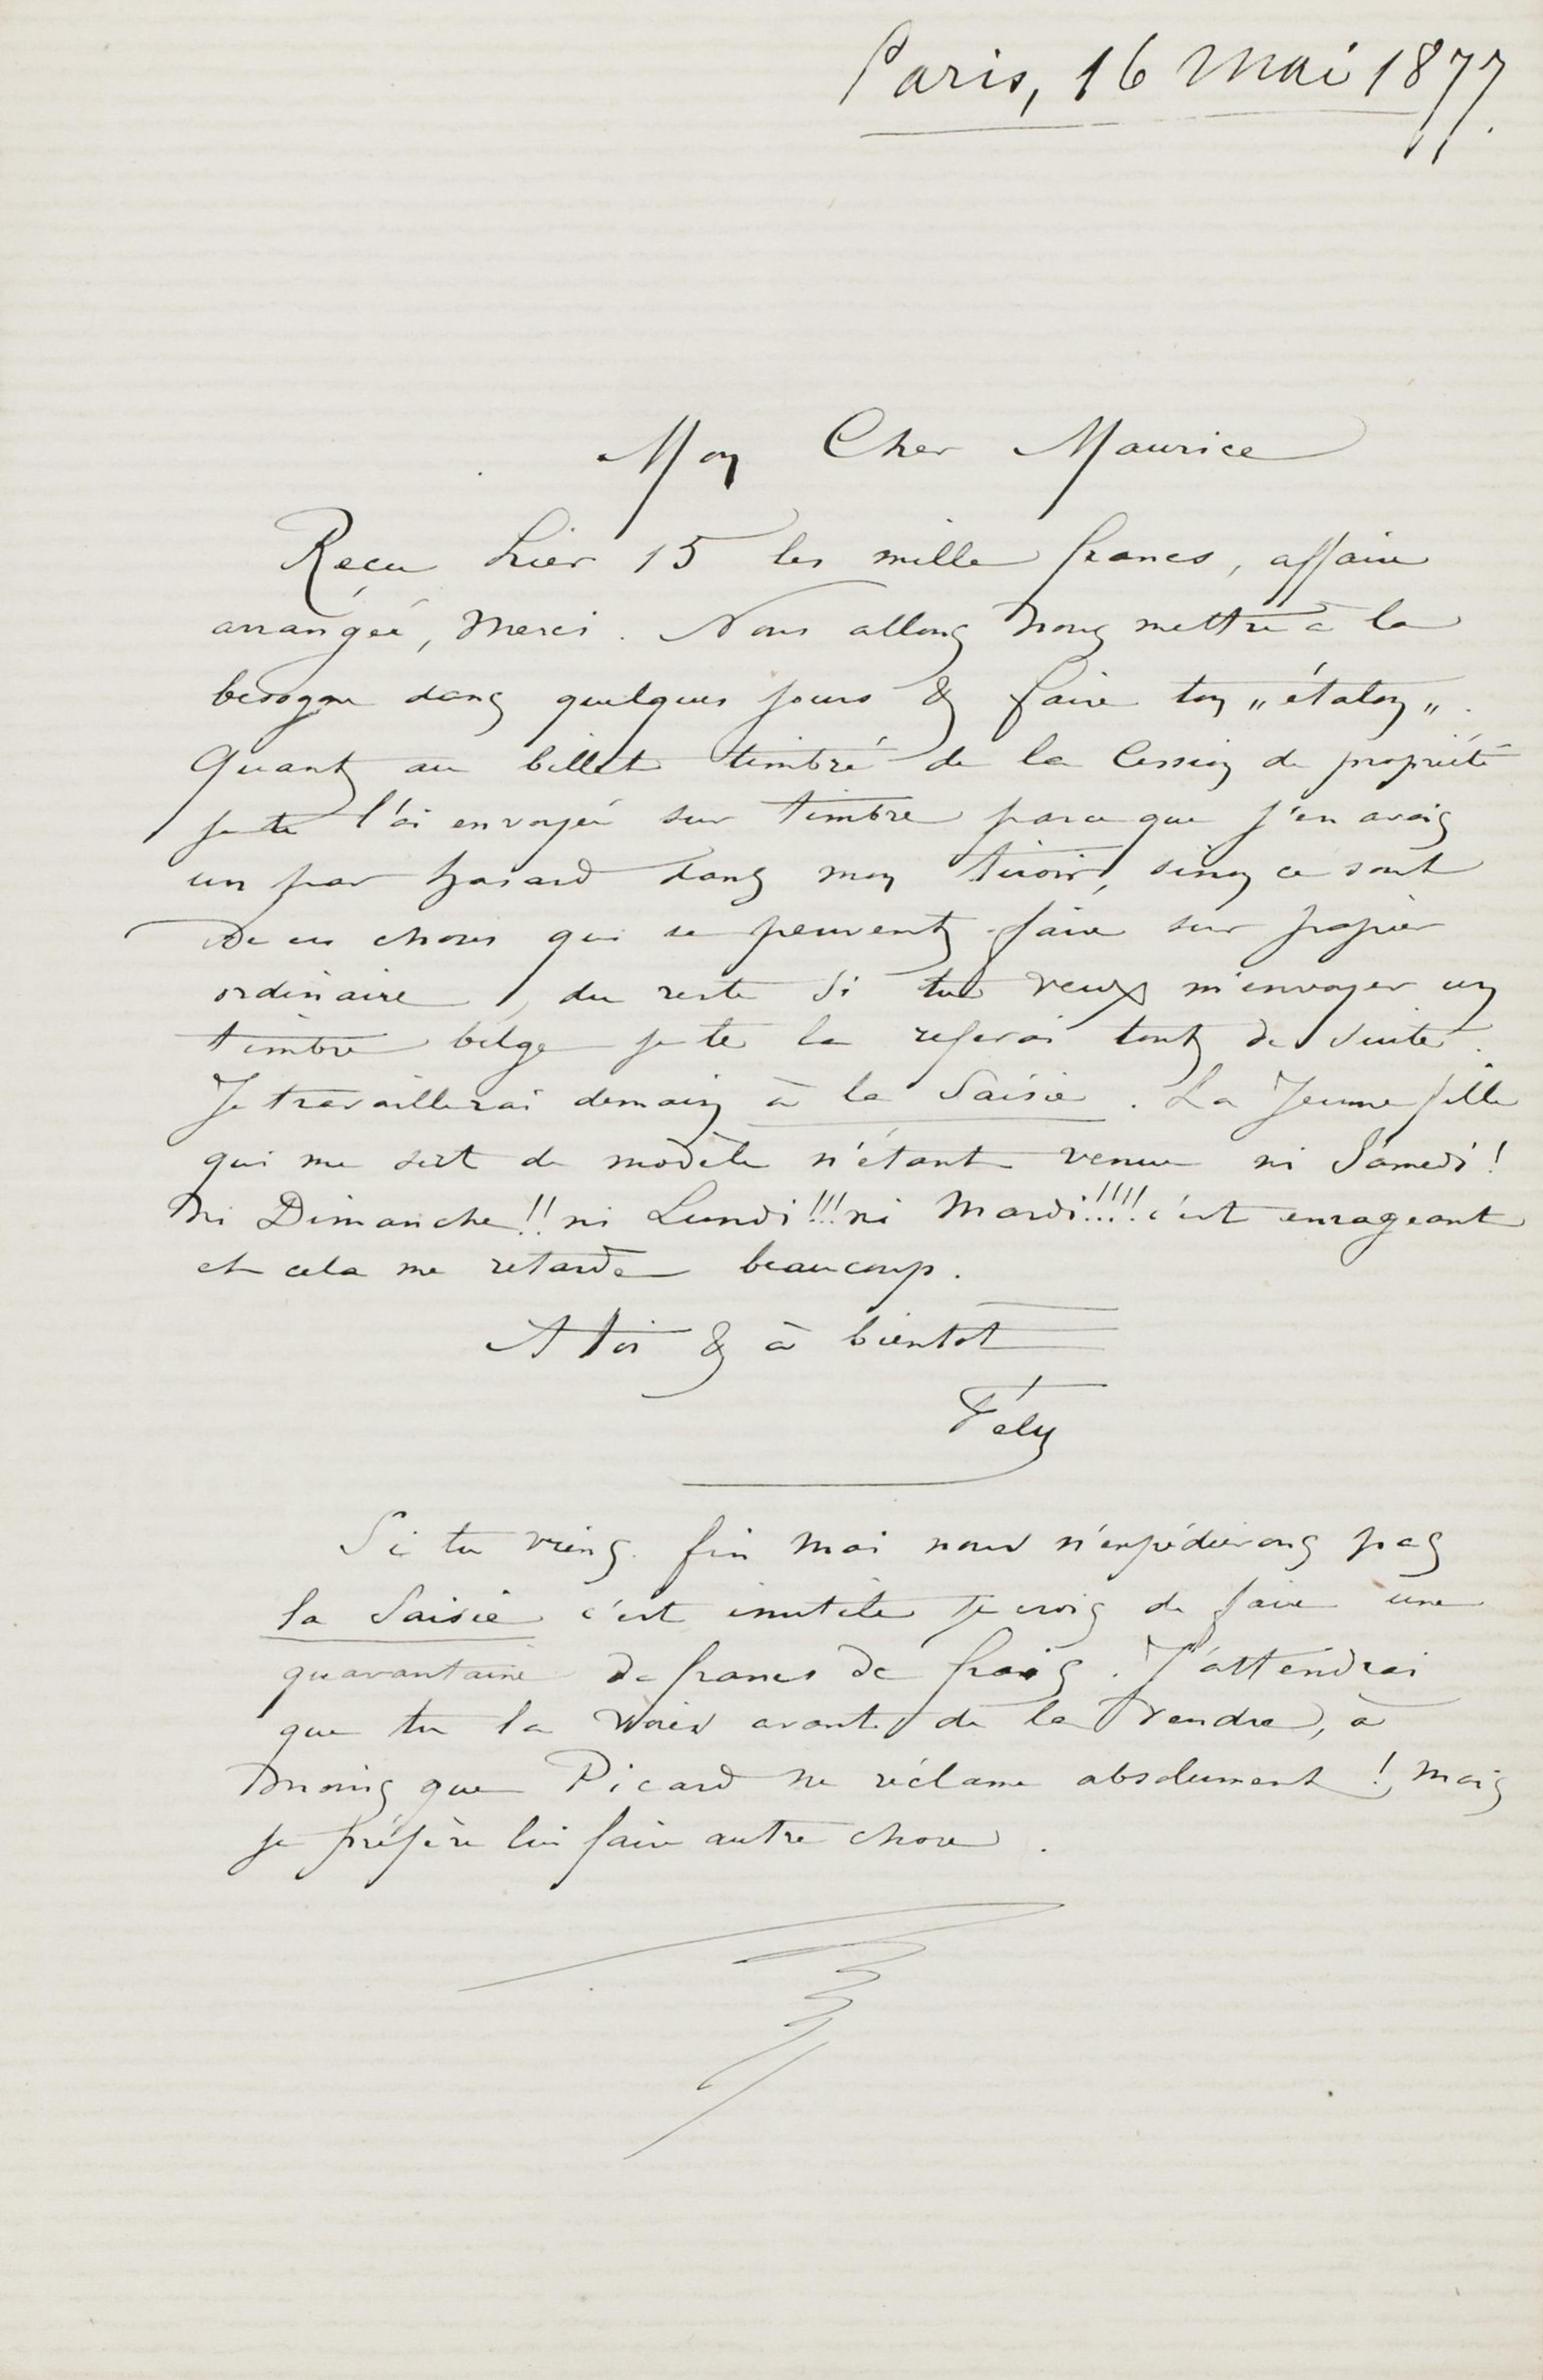 Paris, 16 Mai 1877.
Mon Cher Maurice
Reçu hier 15 les mille francs, affaire
arrangée, Merci. Nous allons nous mettre à la
besogne dans quelques jours & faire ton „étalon„.
Quant au billet timbré de la Cession de propriété
je te l'ai envoyée sur timbre parce que j'en avais
un par hasard dans mon tiroir, sinon ce sont
De ces choses qui se peuvent faire sur papier
ordinaire, du reste Si tu veux m'envoyer un
timbre belge je te la referai tout de suite.
Je travaillerai demain à la Saisie. La Jeune fille
qui me sert de modèle n'étant venue ni Samedi!
Ni Dimanche!! ni Lundi!!! ni Mardi!!!! c'est enrageant
et cela me retarde beaucoup.
A toi & à bientot
Fély
Si tu viens fin Mai nous n'expédierons pas
la Saisie c'est inutile je crois de faire une
quarantaine de francs de frais. J'attendrai
que tu la voies avant de la vendre, à
moins que Picard ne réclame absolument! Mais
je préfère lui faire autre chose.